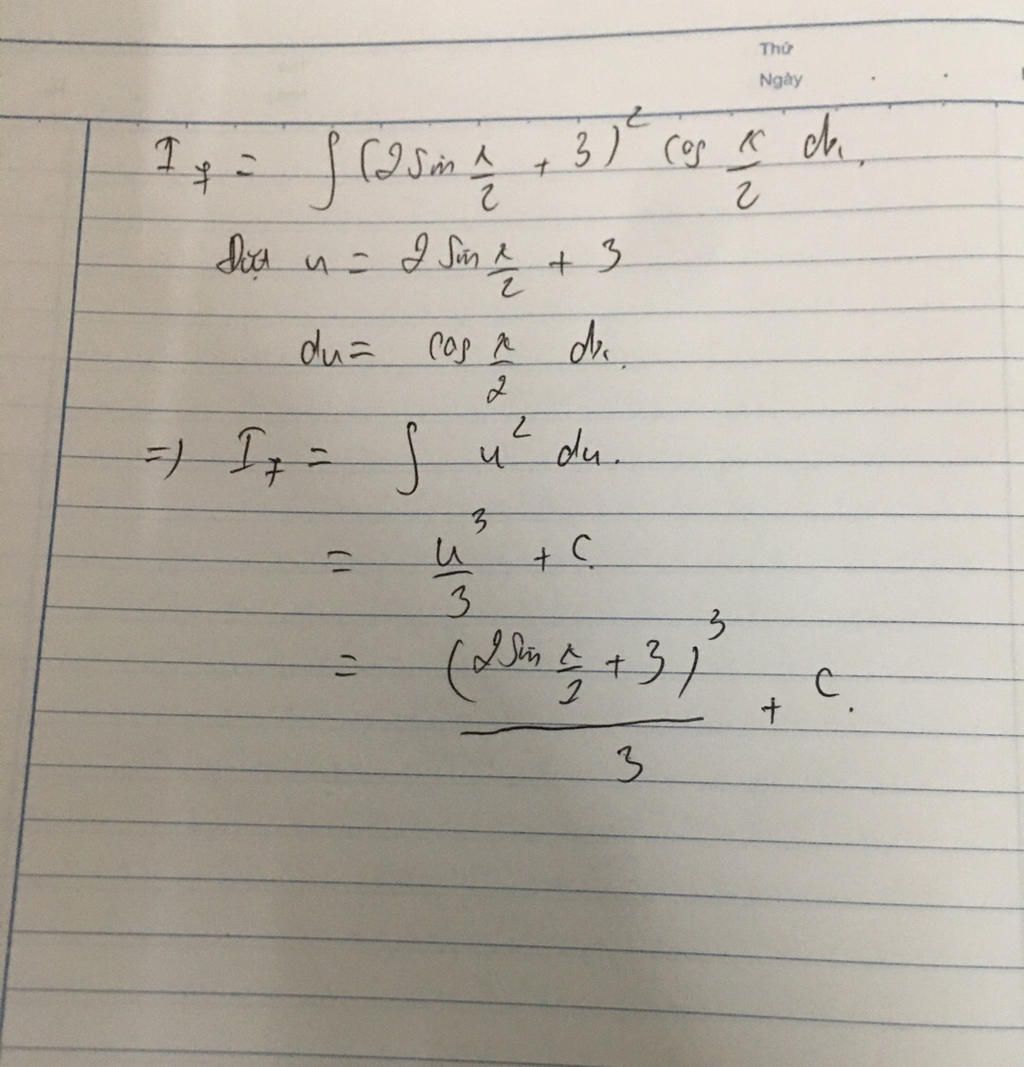 Thứ
Ngày
I₇ = ∫ (2 sin x/2 + 3)² cos x/2 dx.
Đặt u = 2 sin x/2 + 3
du = cos x/2 dx.
=) I₇ = ∫ u² du.
= u³/3 + C.
= (2 sin x/2 + 3)³/3 + C.